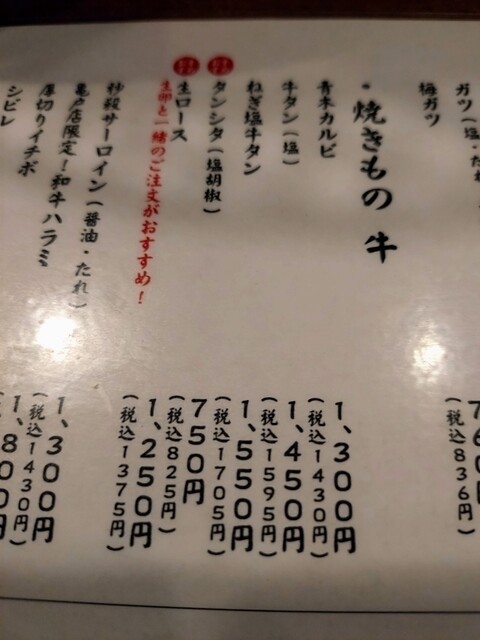 ガツ(塩・たれ
梅ガツ
・焼きもの 牛
青木カルビ
牛タン(塩)
ねぎ塩牛タン
タンシタ(塩胡椒)
生ロース
生卵と一緒のご注文がおすすめ!
秒殺サーロイン(醤油・たれ)
亀戸店限定!和牛ハラミ
厚切りイチボ
シビレ
760円
(税込836円)
1,300円
(税込1430円)
1,450円
(税込1595円)
1,550円
(税込1705円)
750円
(税込825円)
1,250円
(税込1375円)
1,300円
(税込1430円)
1,800円